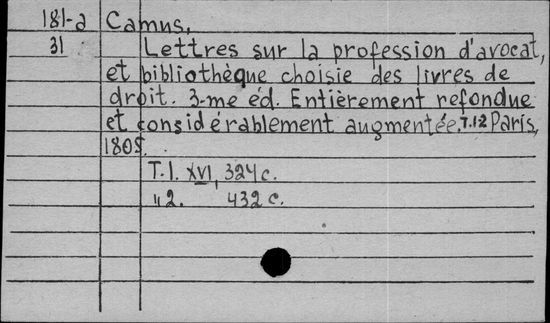 181-a Camus,
31 Lettres sur la profession d'avocat,
et bibliothèque choisie des livres de
droit. 3-me éd. Entièrement refondue
et considérablement augmentée. T.12 Paris,
1805.
T.1. XVI, 324 c.
" 2. 432 c.